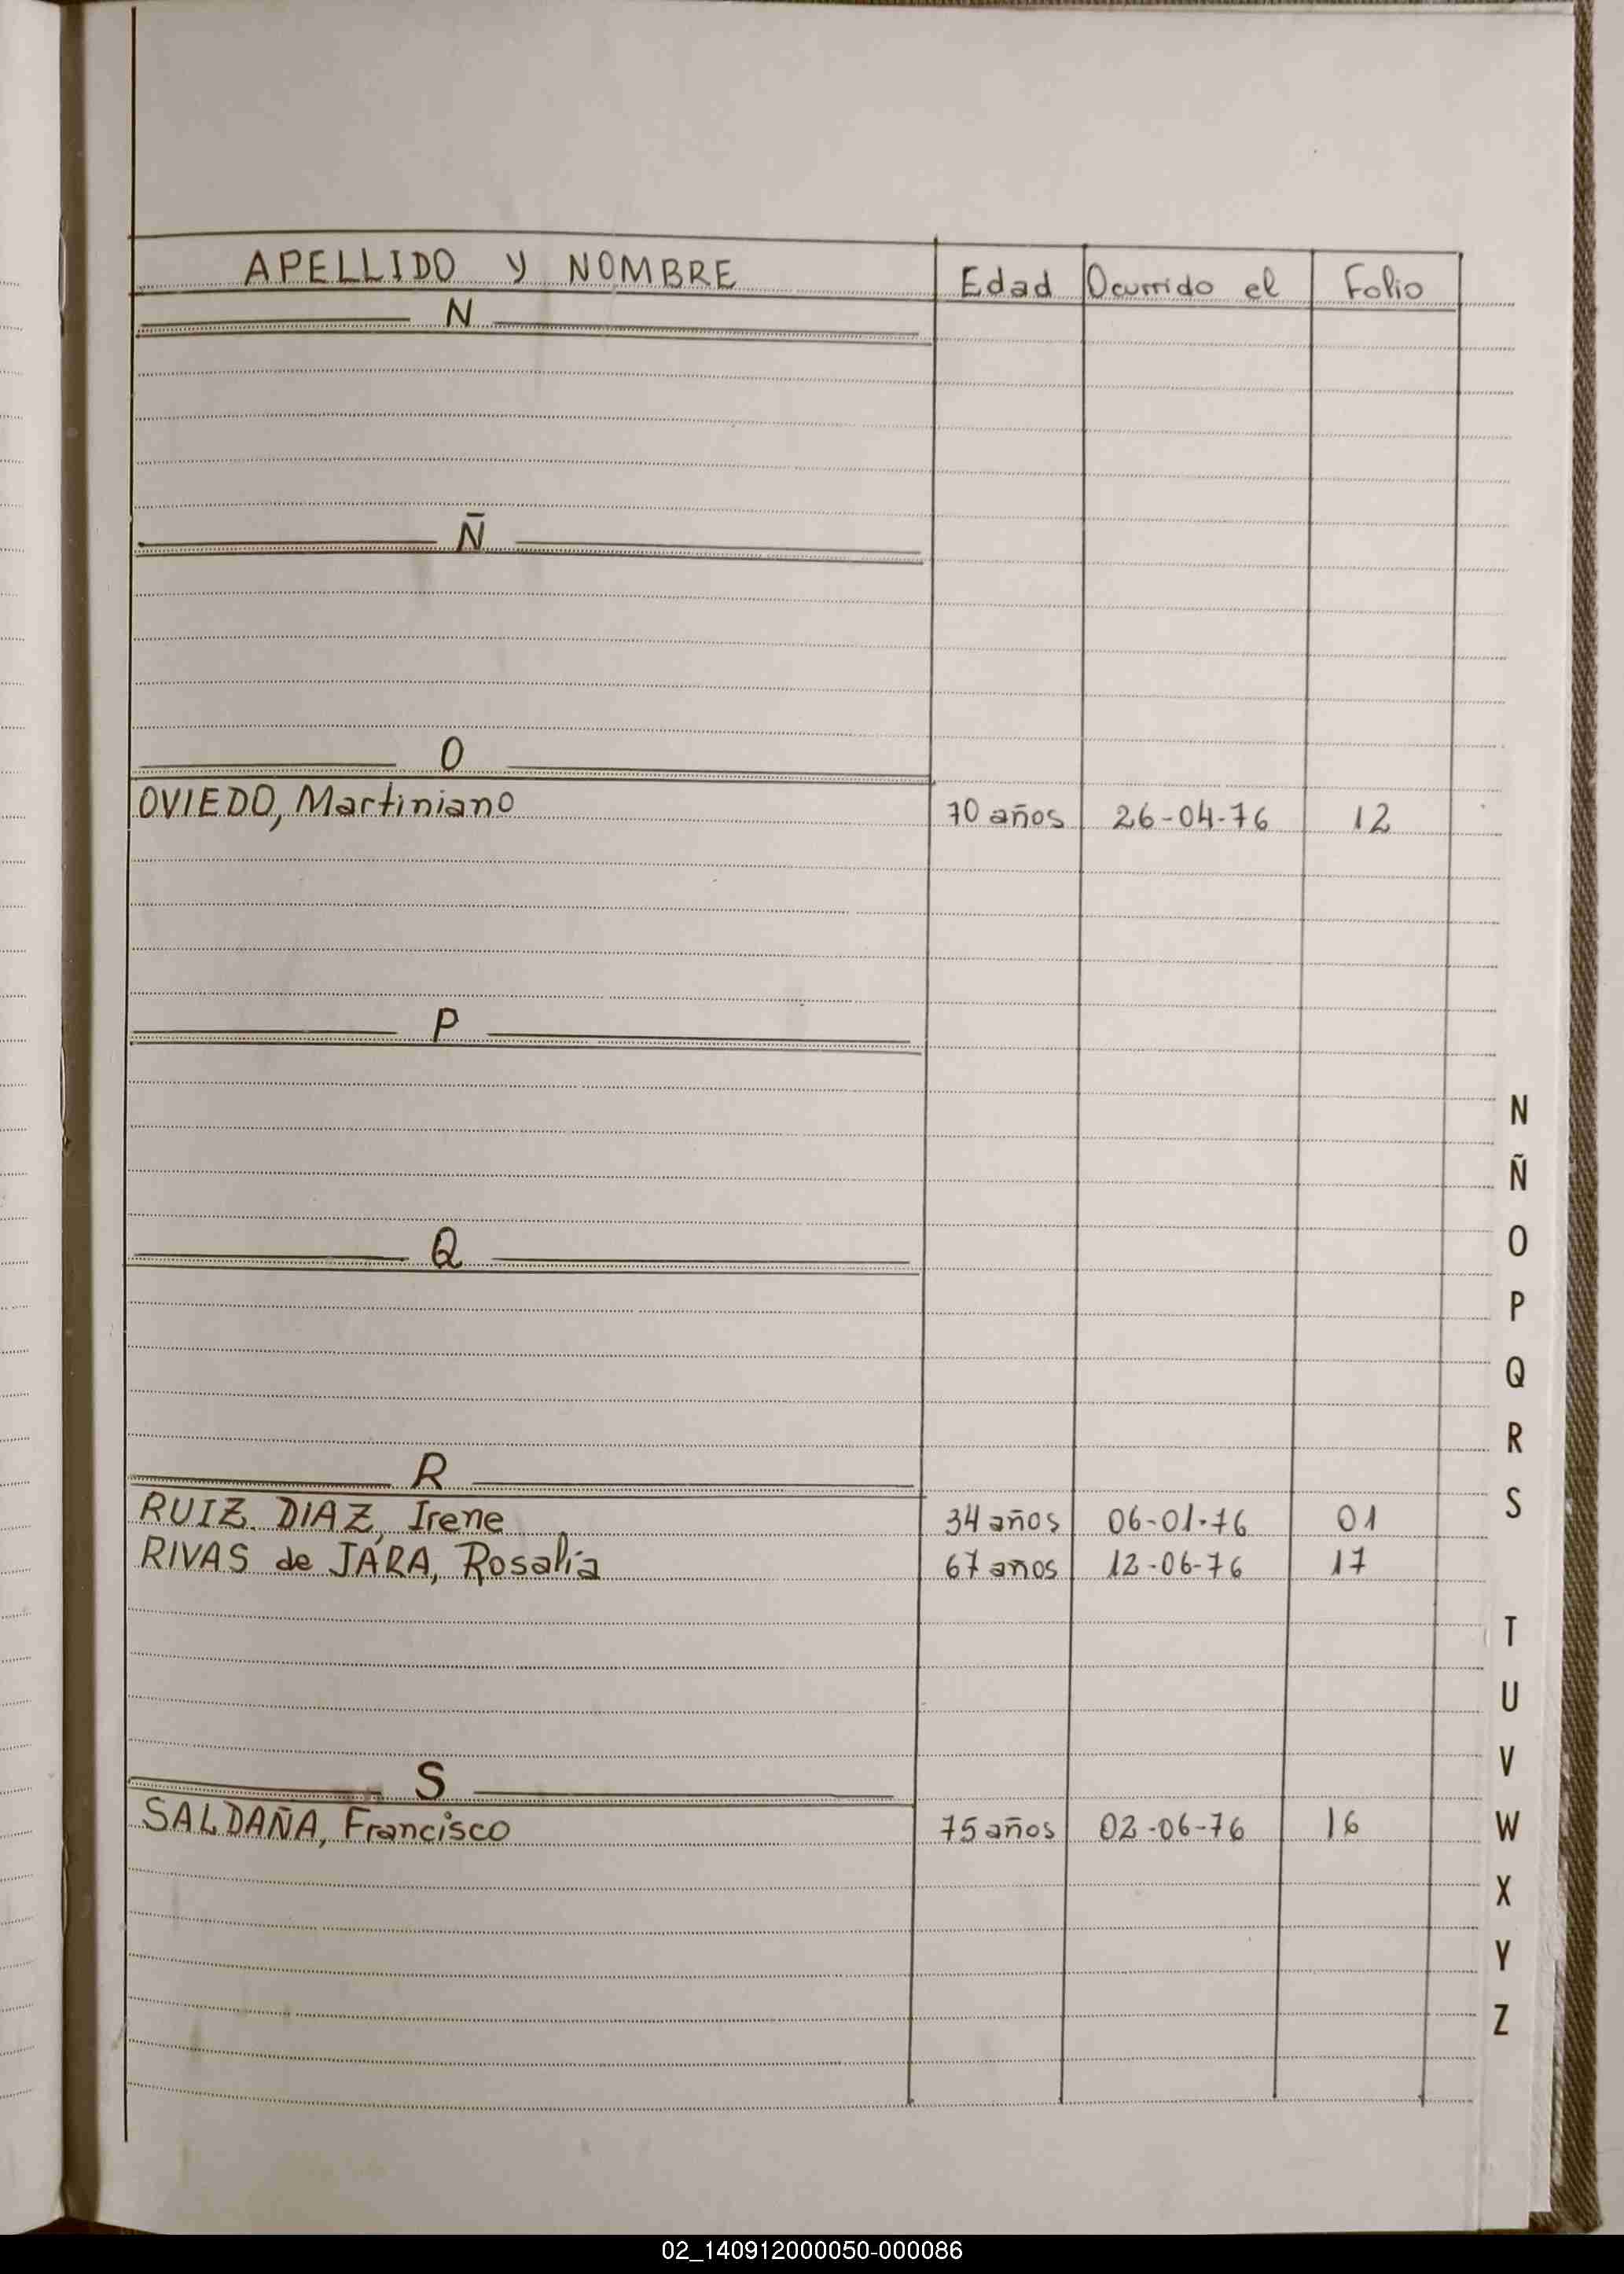 APELLIDO y NOMBRE Edad Ocurrido el Folio
N
Ñ
O
OVIEDO, Martiniano 70 años 26-04-76 12
P
Q
R
RUIZ DIAZ, Irene 34 años 06-01-76 01
RIVAS de JARA, Rosalía 67 años 12-06-76 17
S
SALDAÑA, Francisco 75 años 02-06-76 16
N
Ñ
O
P
Q
R
S
T
U
V
W
X
Y
Z
02_140912000050-000086